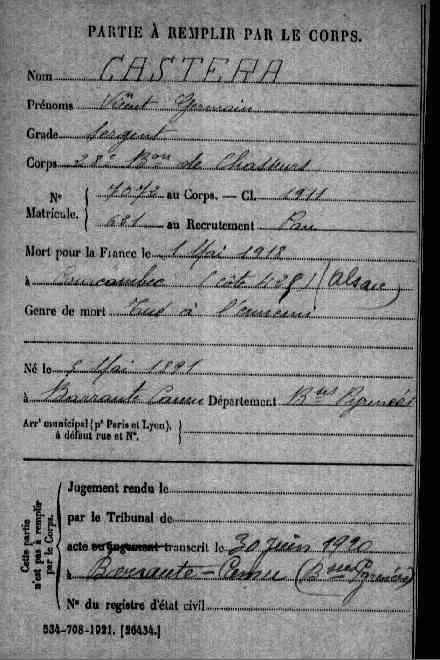 PARTIE À REMPLIR PAR LE CORPS.
Nom CASTERA
Prénoms Germain
Grade Sergent
Corps 28e Bon de Chasseurs
Nº Matricule. 7072 au Corps. — Cl. 1911
681 au Recrutement Pau
Mort pour la France le 1 Mai 1918
à (côte 425) (Alsace)
Genre de mort Tué à l'ennemi
Né le 3 Mai 1891
à Département Bses Pyrénées
Arrt municipal (pr Paris et Lyon), à défaut rue et Nº.
Cette partie n'est pas à remplir par le Corps.
Jugement rendu le
par le Tribunal de
acte ou jugement transcrit le 30 Juin 1920
à (Bses Pyrénées)
Nº du registre d'état civil
534-708-1921. [26434.]